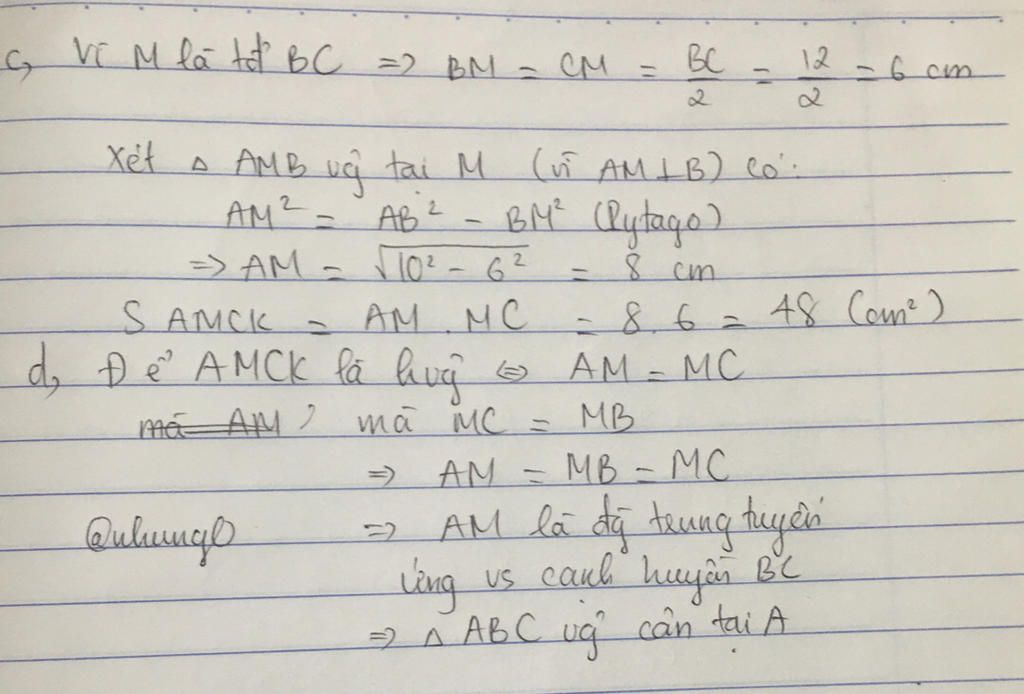 c, Vì M là tđ BC => BM = CM = BC/2 = 12/2 = 6 cm
Xét △ AMB vg tại M (vì AM⊥B) có:
AM² = AB² - BM² (Pytago)
=> AM = √10² - 6² = 8 cm
S AMCK = AM . MC = 8.6 = 48 (cm²)
d, Để AMCK là hvg <=> AM = MC
mà AM, mà MC = MB
=> AM = MB = MC
=> AM là đg trung tuyến
ứng vs cạnh huyền BC
=> △ ABC vg cân tại A